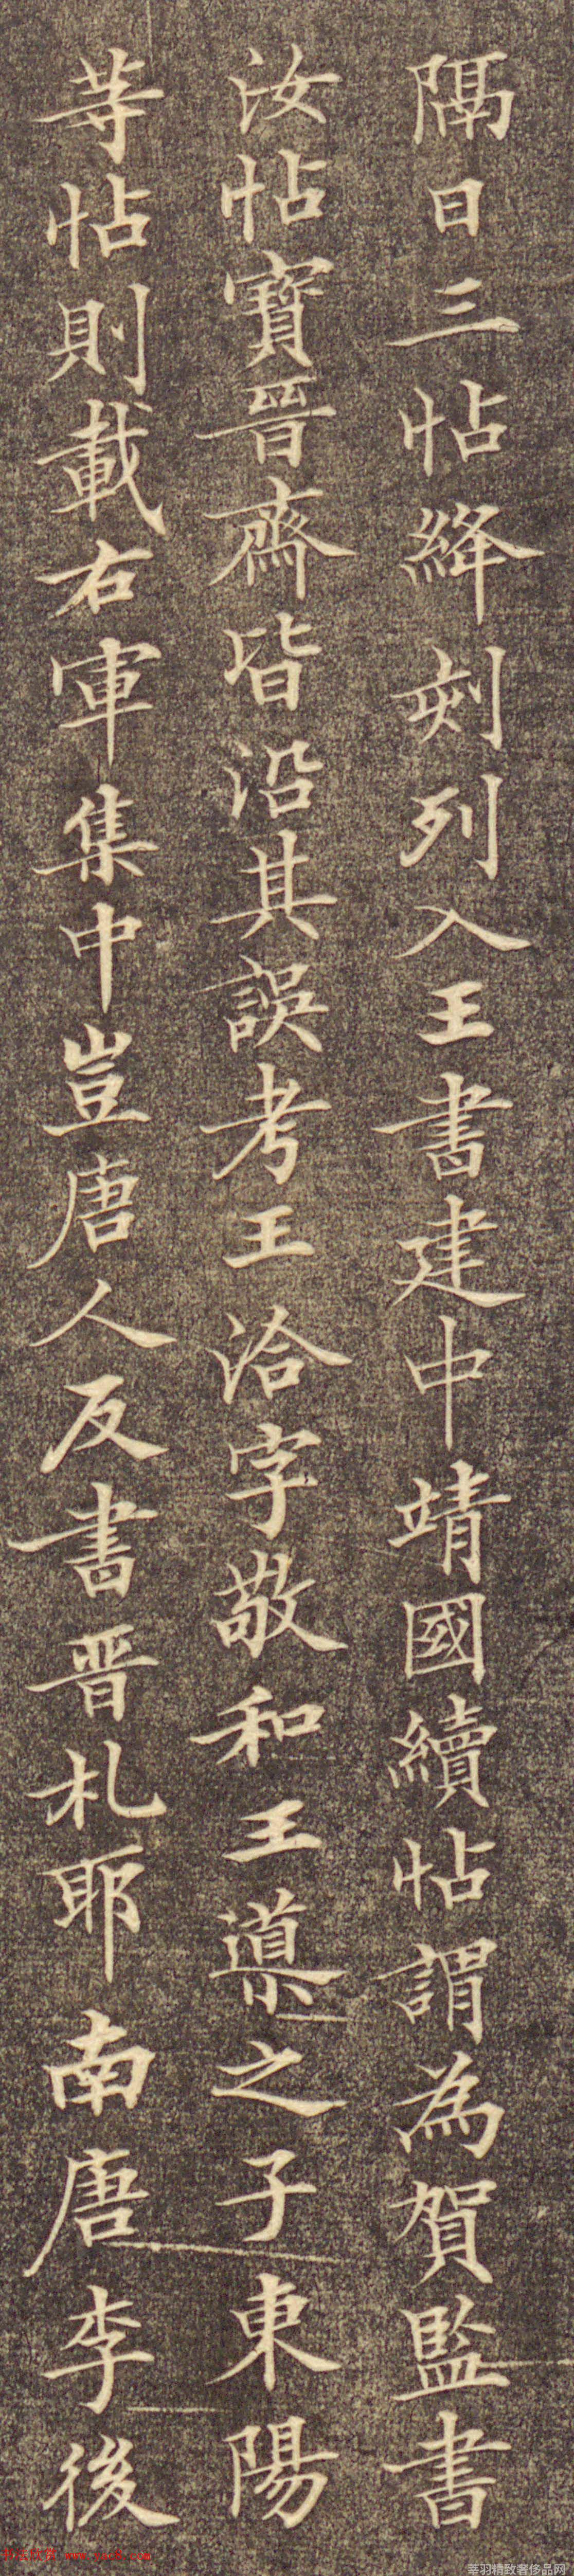 隔日三帖絳刻列入王書建中靖國續帖謂為賀監書
汝帖寶晉齋皆沿其誤考王洽字敬和王導之子東陽
等帖則載右軍集中豈唐人反書晉札耶南唐李後
莘羽精致奢侈品网